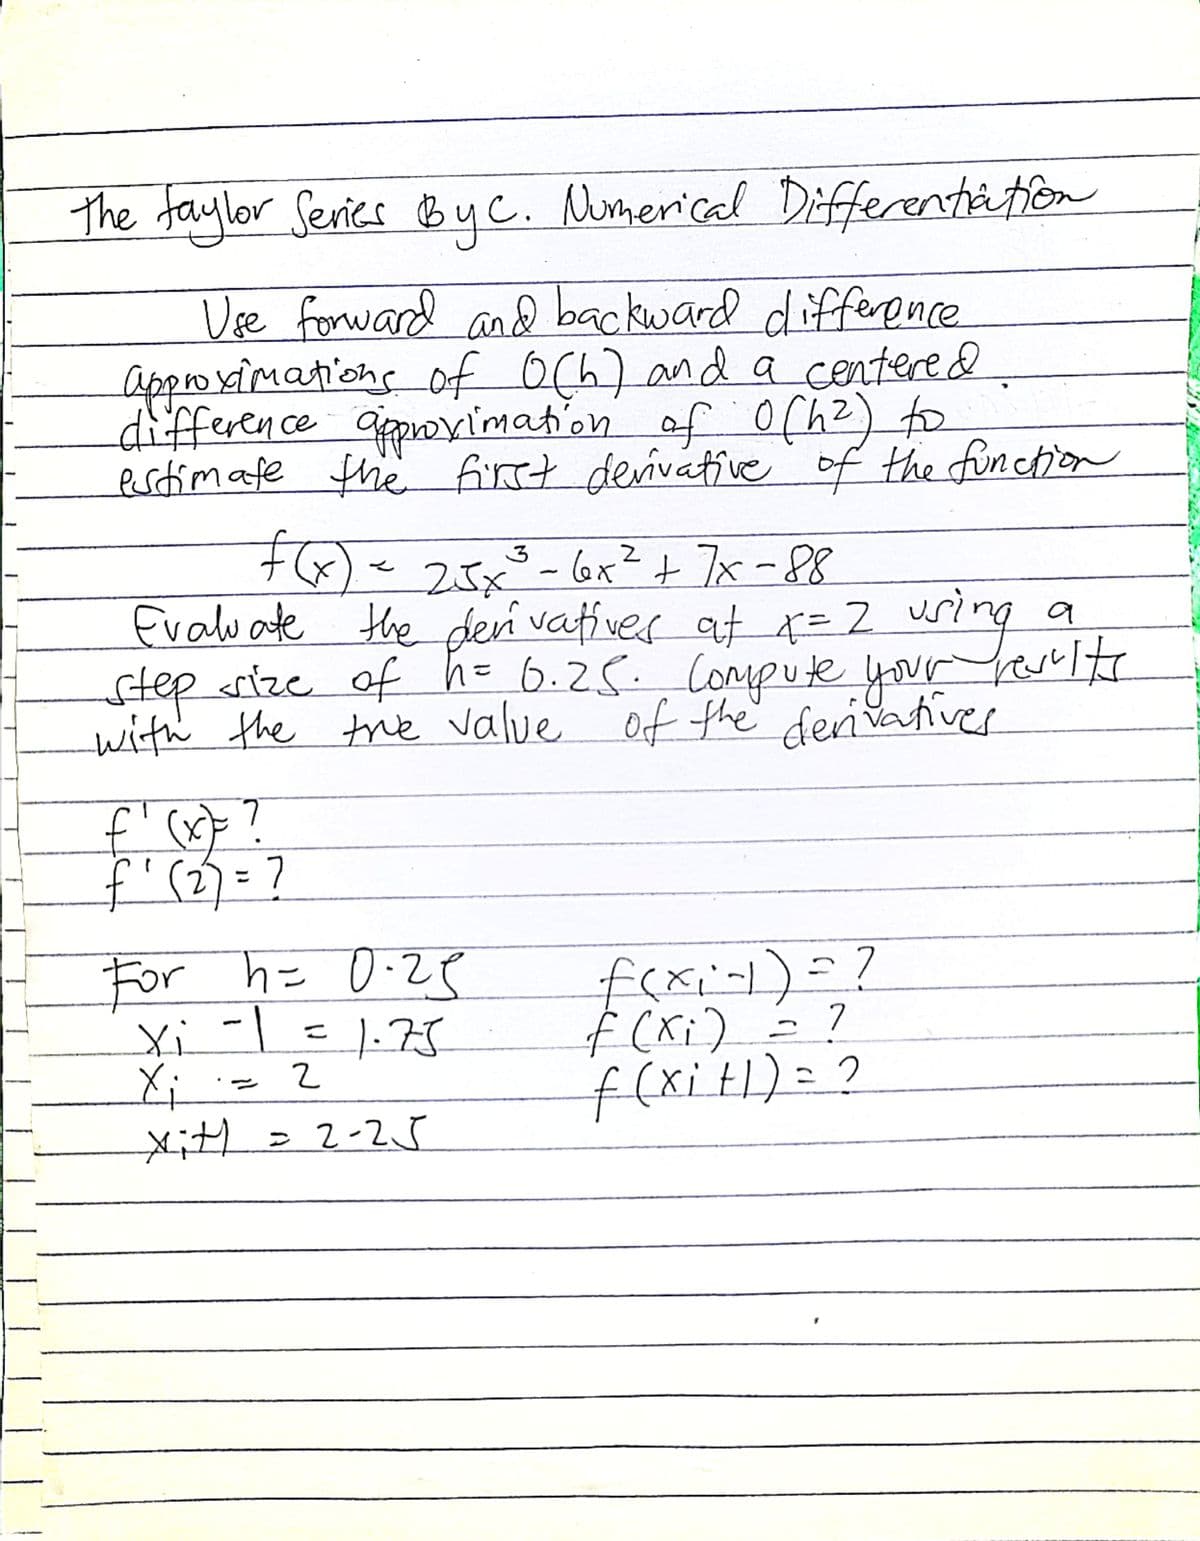 The taylor Series By C. Numerical Differentiation
Use forward and backward difference
approximations of O(h) and a centered
difference approximation of O(h²) to
estimate the first derivative of the function
f(x) = 25x³ - 6x² + 7x - 88
Evaluate the derivatives at x = 2 using a
step size of h = 0.25. Compute your results
with the true value of the derivatives
f'(x) = ?
f'(2) = ?
For h = 0.25
xi - 1 = 1.75
xi = 2
xi+1 = 2.25
f(xi-1) = ?
f(xi) = ?
f(xi+1) = ?